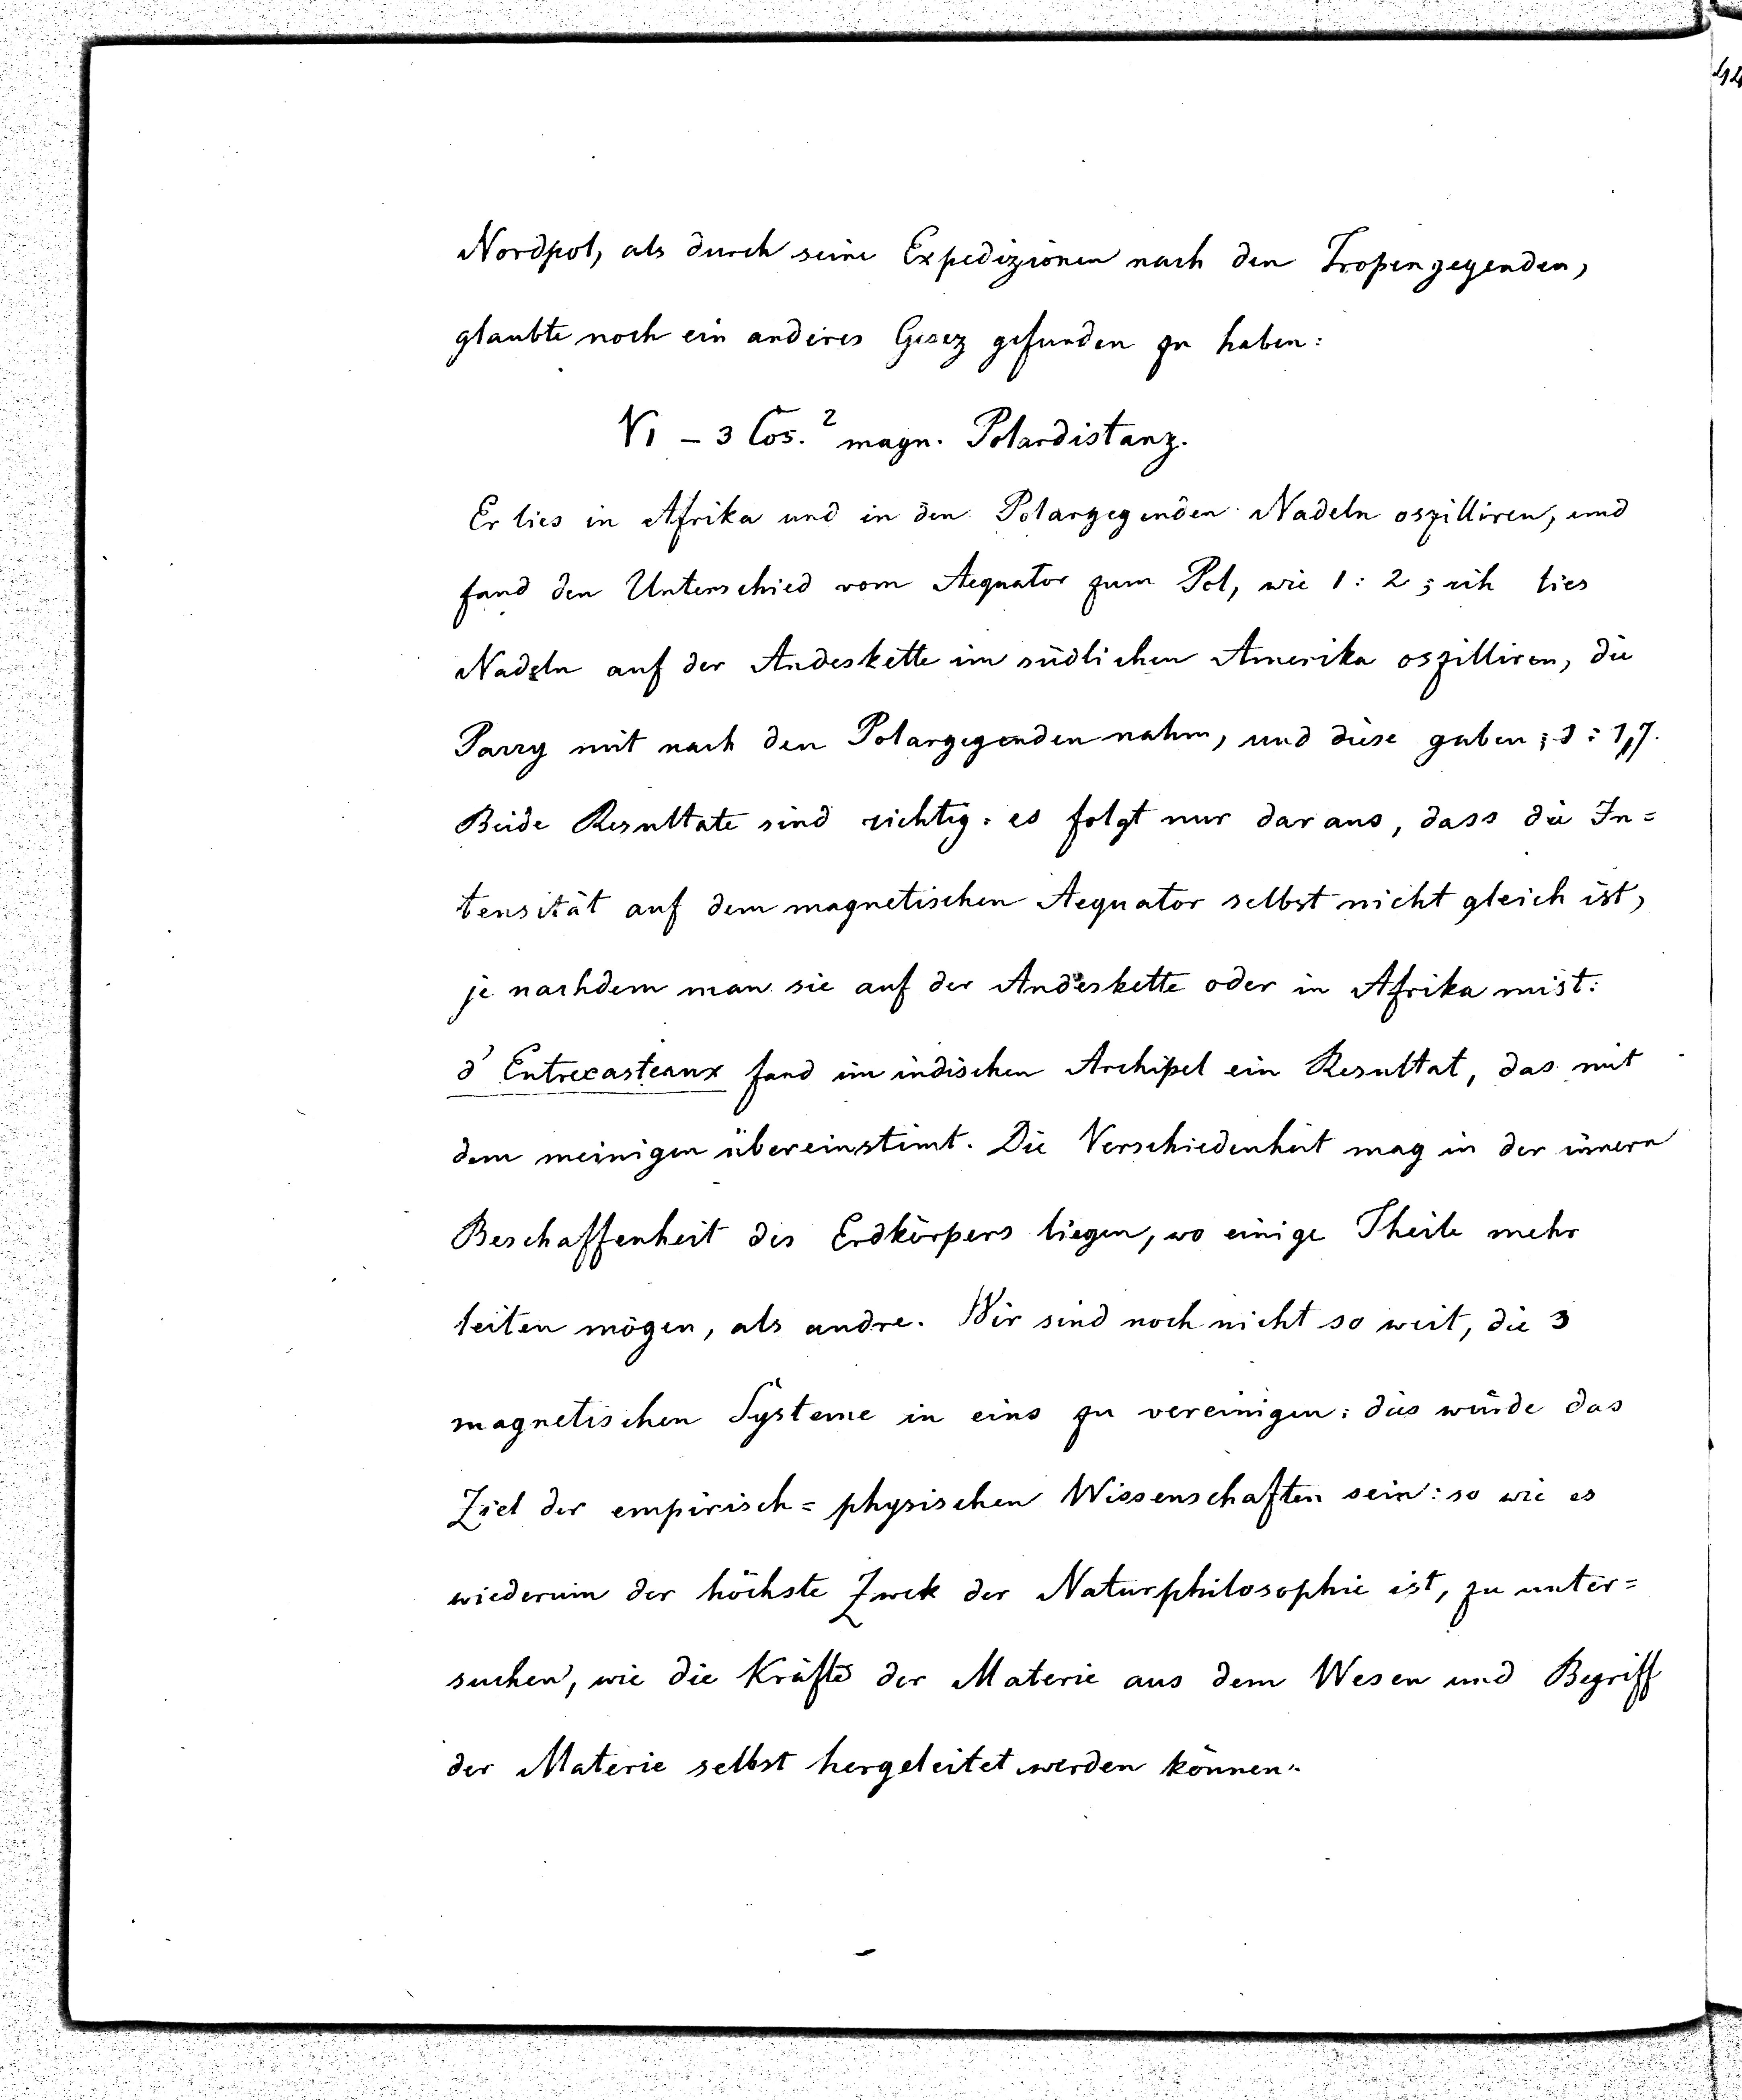 Nordpol, als durch seine Expedizionen nach den Tropengegenden,
glaubte noch ein anderes Gesez gefunden zu haben:
√1 – 3 Cos.² magn. Polardistanz.
Er lies in Afrika und in den Polargegenden Nadeln oszilliren, und
fand den Unterschied vom Aequator zum Pol, wie 1 : 2 ; ich lies
Nadeln auf der Andeskette im südlichen Amerika oszilliren, die
Parry mit nach den Polargegenden nahm, und diese gaben ; 1 : 1,7.
Beide Resultate sind richtig: es folgt nur daraus, dass die In=
tensität auf dem magnetischen Aequator selbst nicht gleich ist,
je nachdem man sie auf der Andeskette oder in Afrika mist:
d' Entrecasteaux fand im indischen Archipel ein Resultat, das mit
dem meinigen übereinstimt. Die Verschiedenheit mag in der innern
Beschaffenheit des Erdkörpers liegen, wo einige Theile mehr
leiten mögen, als andre. Wir sind noch nicht so weit, die 3
magnetischen Systeme in eins zu vereinigen: dies würde das
Ziel der empirisch=physischen Wissenschaften sein: so wie es
wiederum der höchste Zwek der Naturphilosophie ist, zu unter=
suchen, wie die Kräfte der Materie aus dem Wesen und Begriff
der Materie selbst hergeleitet werden können.